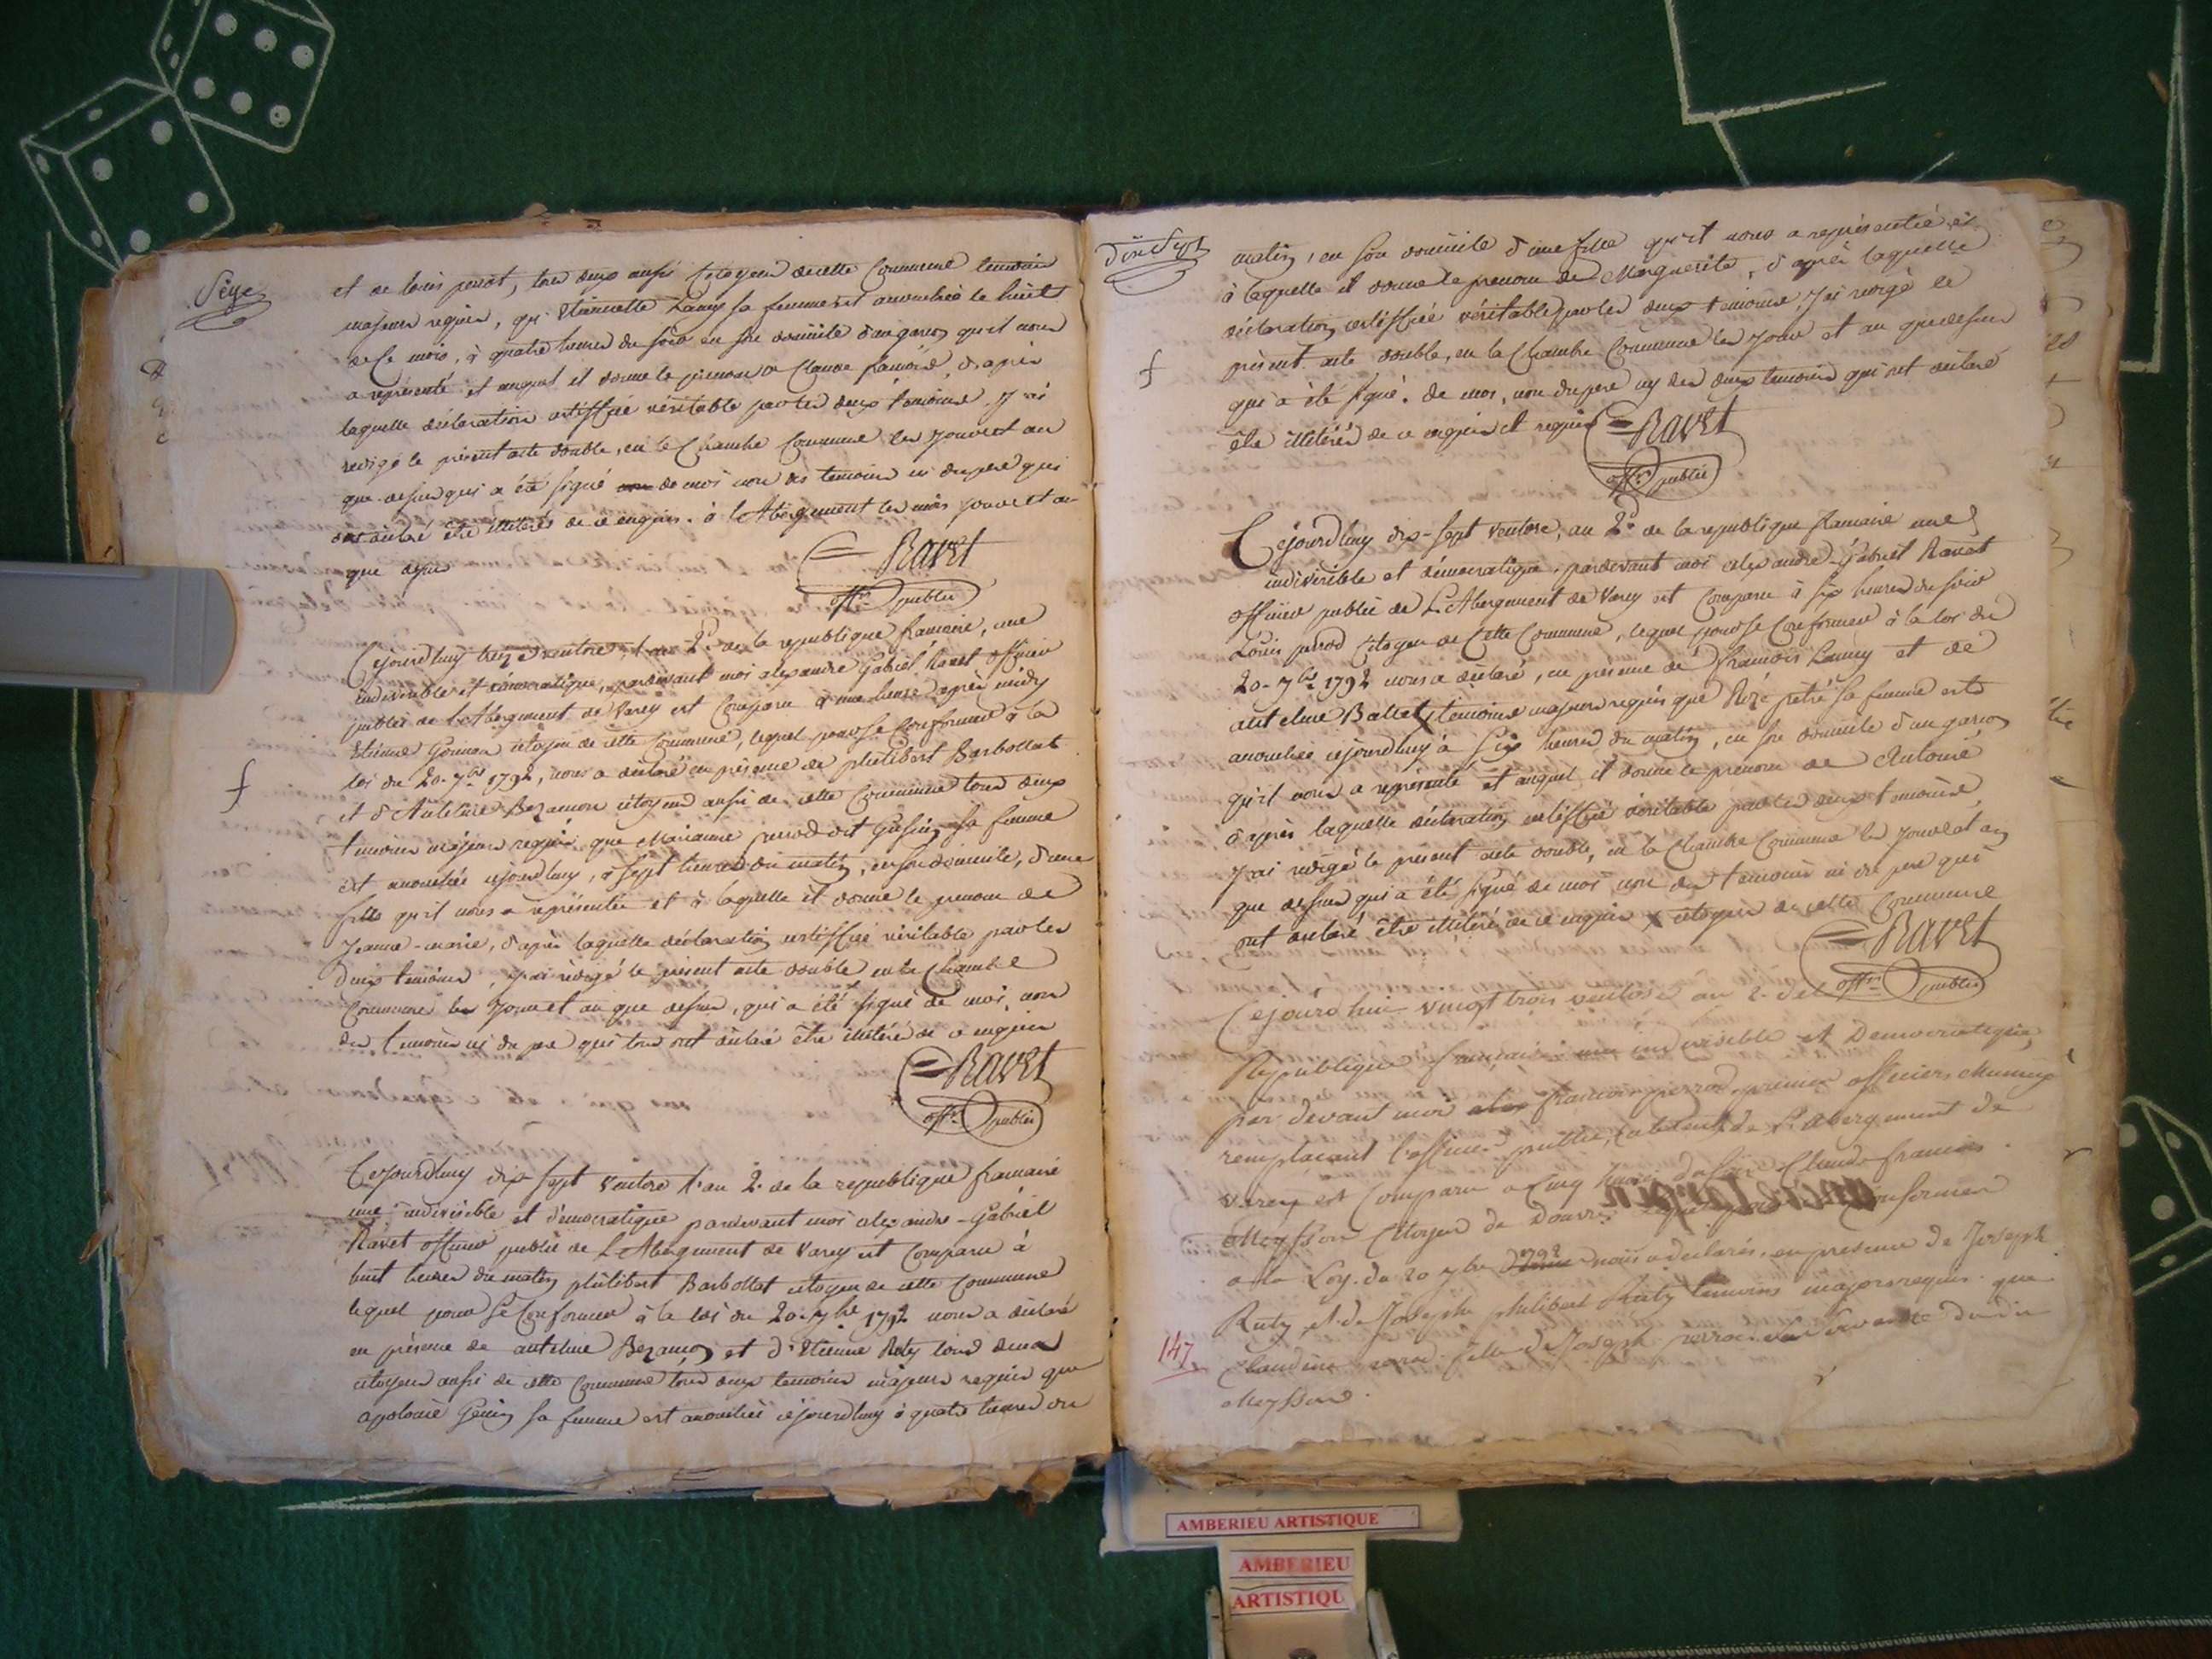 Seize
et de louis perrot, tous deux aussi Citoyens de cette Commune temoins
majeurs requis, que Etiennette Lamy sa femme est accouchée le huit
de ce mois, à quatre heures du soir en son domicile d'un garçon qu'il nous
a représenté et auquel il donne le prénom de Claude françois, d'après
laquelle déclaration certiffiée véritable par les deux temoins. J'ai
redigé le présent acte double, en la Chambre Commune les jour et an
que dessus qui a été signé de moi non des temoins ni du pere qui
ont déclaré être illiterés de ce enquis. à l'Abergement les mois jour et an
que dessus
Ravet
offr. public
Cejourdhuy treize ventose, l'an 2d. de la republique francaise, une
indivisible et démocratique, pardevant moi alexandre Gabriel Ravet officier
public de l'Abergement de Varey est Comparu à une heure après midy
Etienne citoyen de cette Commune, lequel pour se Conformer à la
loi du 20. 7bre 1792, nous a déclaré en présence de philibert Barbollat
et d'Anthelme Bezancon citoyens aussi de cette Commune tous deux
temoins majeurs requis que Marianne perrod dit sa femme
est accouchée cejourdhuy, à sept heures du matin, en son domicile, d'une
fille qu'il nous a représentée et à laquelle il donne le prenom de
Jeanne-marie, d'après laquelle déclaration certiffiée véritable par les
deux temoins, j'ai rédigé le présent acte double en la Chambre
Commune les Jour et an que dessus, qui a été signé de moi, non
des temoins ni du pere qui tous ont déclaré être illiterés de ce enquis
Ravet
offr. public
Cejourdhuy dix sept Ventose l'an 2. de la republique francaise
une indivisible et démocratique pardevant moi alexandre-Gabriel
Ravet officier public de L'Abergement de Varey est Comparu à
huit heures du matin philibert Barbollat citoyen de cette Commune
lequel pour se Conformer à la loi du 20. 7bre 1792 nous a déclaré
en présence de anthelme Bezancon et d'Etienne Ruty tous deux
citoyens aussi de cette Commune tous deux temoins majeurs requis que
apolonie Genin sa femme est accouchée cejourdhuy à quatre heures du
Dix Sept
matin, en son domicile d'une fille qu'il nous a représentée et
à laquelle il donne le prenom de Marguerite, d'après laquelle
déclaration certiffiée véritable par les deux temoins, j'ai redigé le
présent acte double, en la Chambre Commune les Jour et an que dessus
qui a été signé de moi, non du pere ny des deux temoins qui ont déclaré
être illiterés de ce enquis et requis
Ravet
offr. public
Cejourdhuy dix-sept Ventose, an 2d. de la republique francaise une
indivisible et démocratique. pardevant moi alexandre-Gabriel Ravet
officier public de L'Abergement de Varey est Comparu à six heures du soir
Louis perrod Citoyen de Cette Commune, lequel pour se Conformer à la loi du
20. 7bre 1792 nous a déclaré, en présence de françois Lamy et de
anthelme Ballet X temoins majeurs requis que Roze sa femme est
accouchée cejourdhuy à six heures du matin, en son domicile d'un garçon
qu'il nous a représenté et auquel il donne le prenom de Antoine
d'après laquelle déclaration certiffiée véritable par les deux temoins,
j'ai redigé le présent acte double, en la Chambre Commune les jour et an
que dessus qui a été signé de moi non des temoins ni du pere qui
ont déclaré être illiterés de ce enquis X citoyens de cette Commune
Ravet
offr. public
Cejourd'hui vingt trois ventose an 2. de la
Republique française une indivisible et Democratique,
par devant moi francois perrod premier officiers Municip
remplacant l'officier public, de L'abergement de
varey est Comparu a Cinq heures du soir Claude francois
Meysson Citoyen de Douvres Conformer
a la Loy. du 20 7bre 1792 nous a declarés, en presence de Joseph
Ruty et de Joseph philibert Ruty temoins majors requis. que
Claudine perrod fille de Joseph perrod dudit
Meysson.
147
André Tarpin
AMBERIEU ARTISTIQUE
AMBERIEU
ARTISTIQU